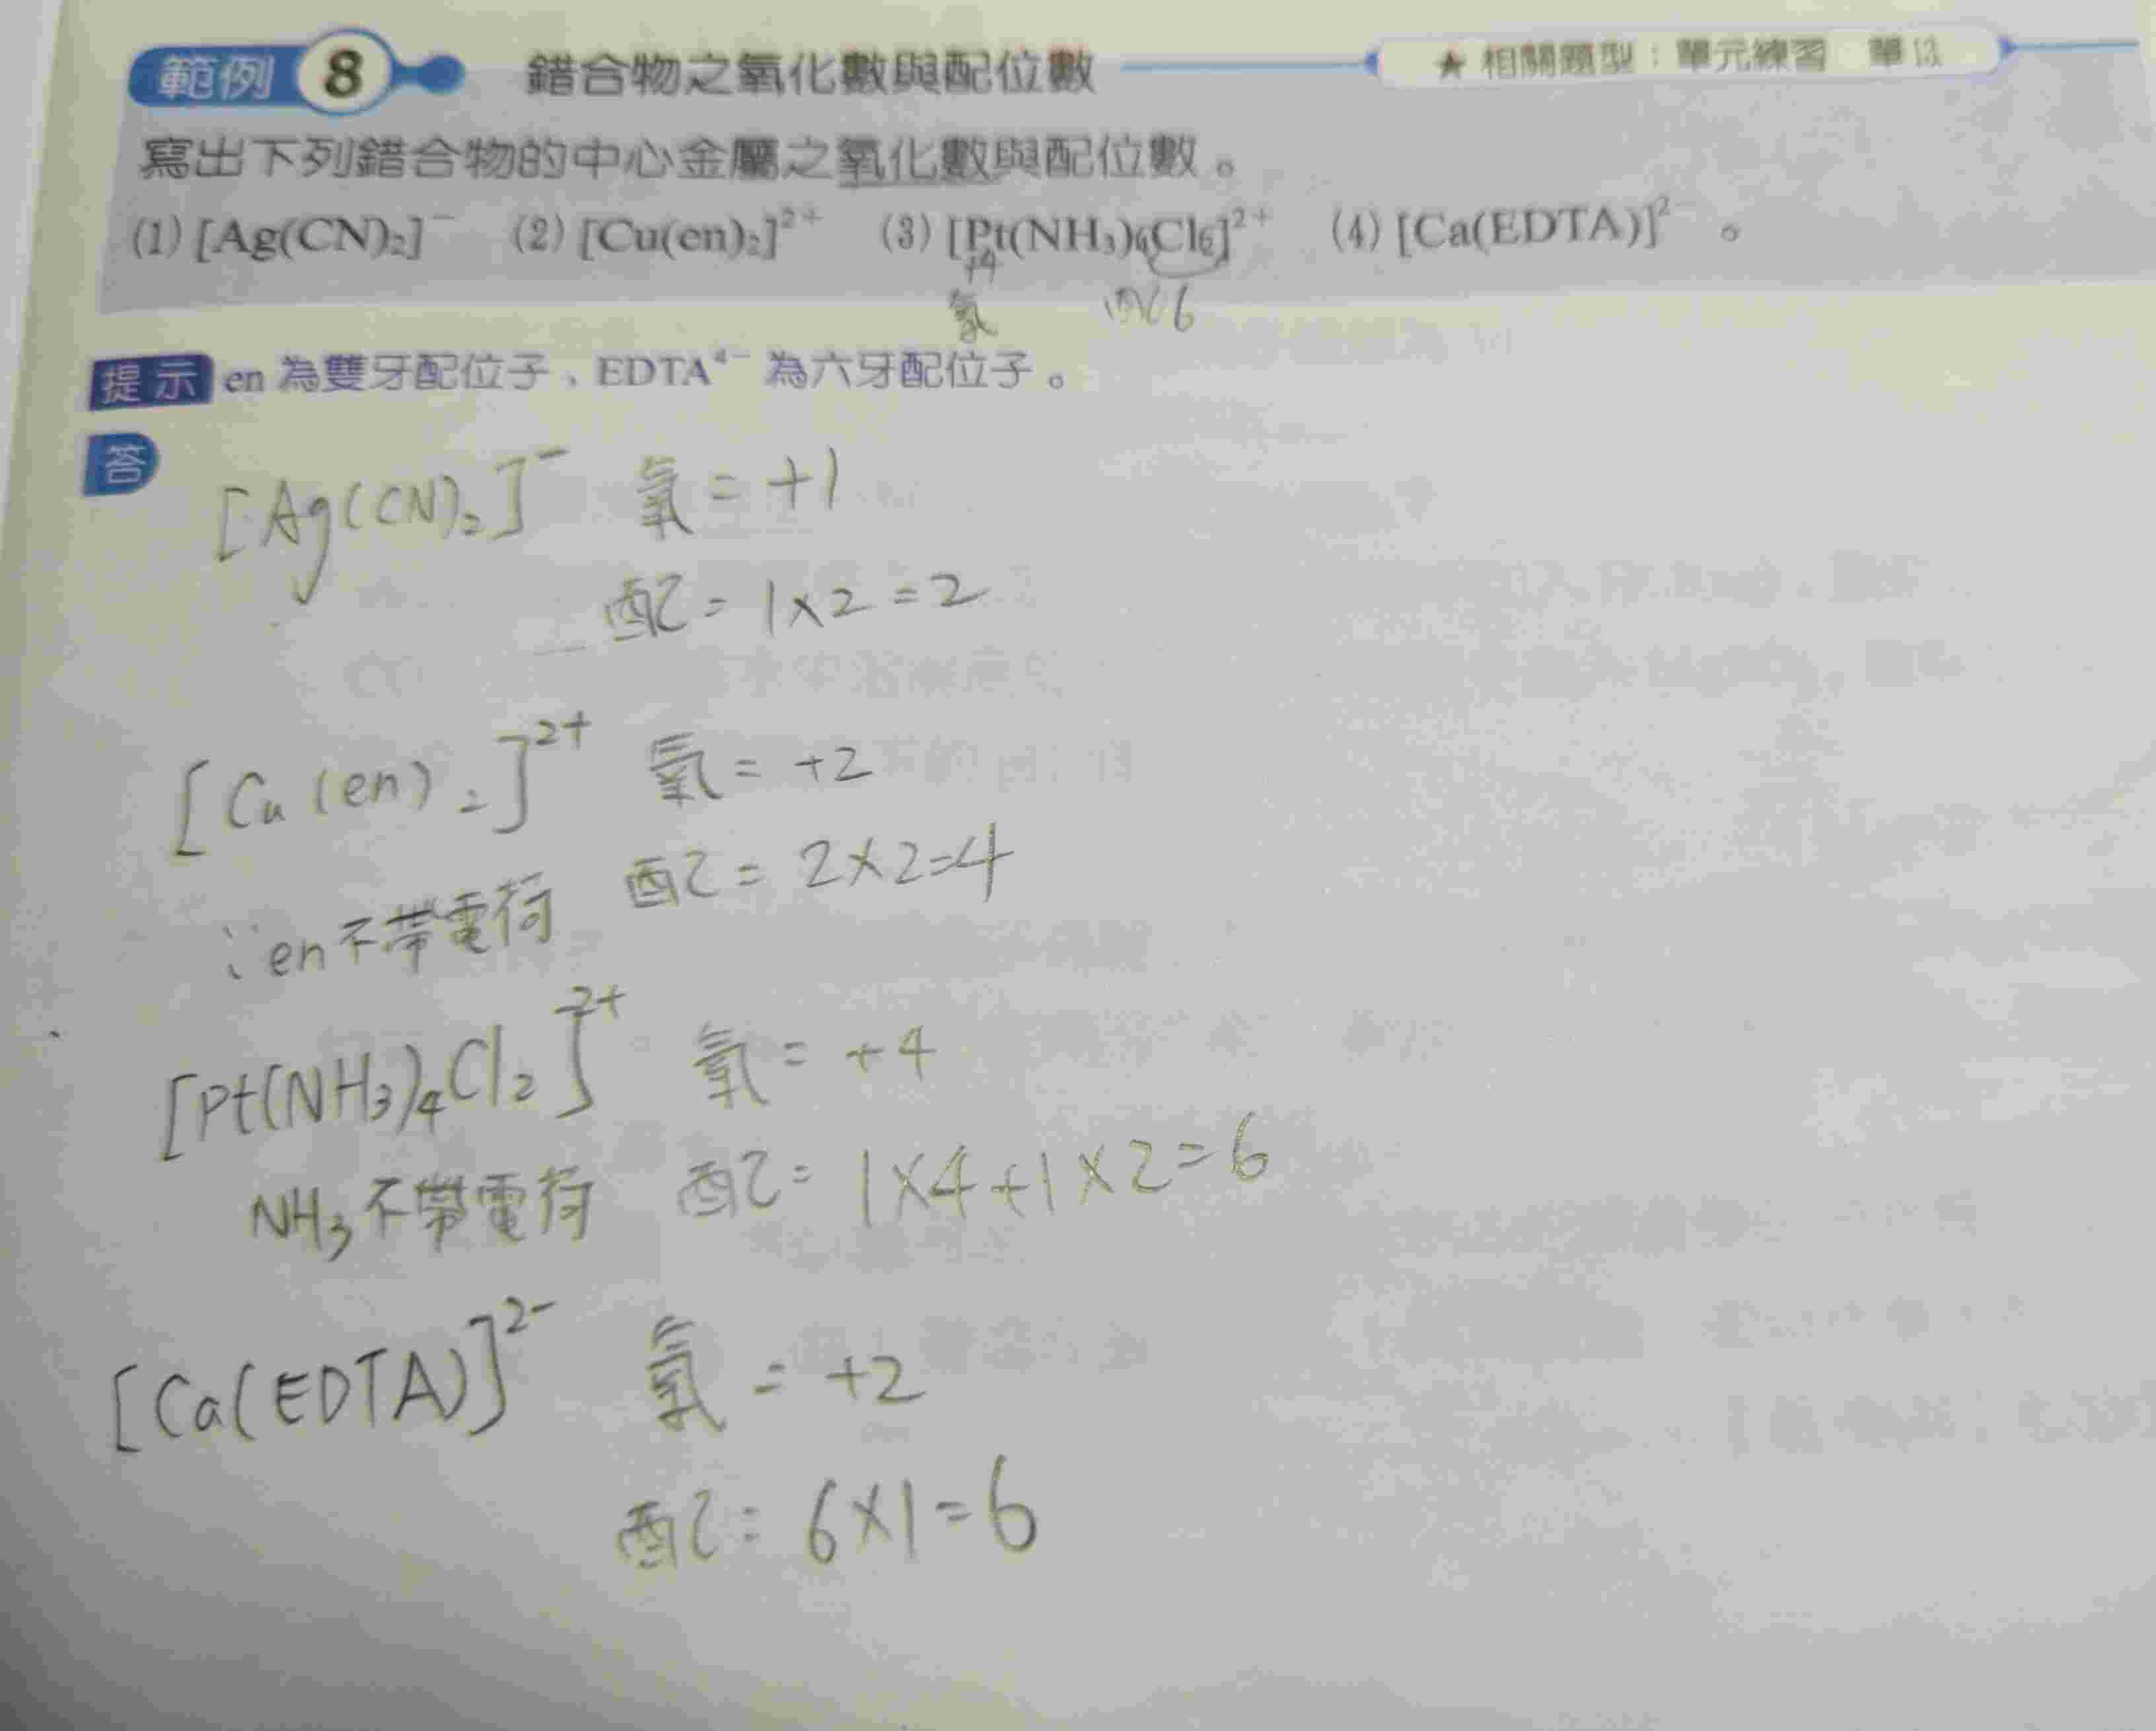 範例 8 錯合物之氧化數與配位數 ★相關題型：單元練習 單13
寫出下列錯合物的中心金屬之氧化數與配位數。
(1) [Ag(CN)₂]⁻ (2) [Cu(en)₂]²⁺ (3) [Pt(NH₃)₄Cl₂]²⁺ (4) [Ca(EDTA)]²⁻。
+4
氧 配6
提示 en 為雙牙配位子，EDTA⁴⁻ 為六牙配位子。
答
[Ag(CN)₂]⁻ 氧 = +1
配 = 1×2 = 2
[Cu(en)₂]²⁺ 氧 = +2
配 = 2×2=4
∵en不帶電荷
[Pt(NH₃)₄Cl₂]²⁺ 氧 = +4
NH₃不帶電荷 配 = 1×4+1×2=6
[Ca(EDTA)]²⁻ 氧 = +2
配 = 6×1=6